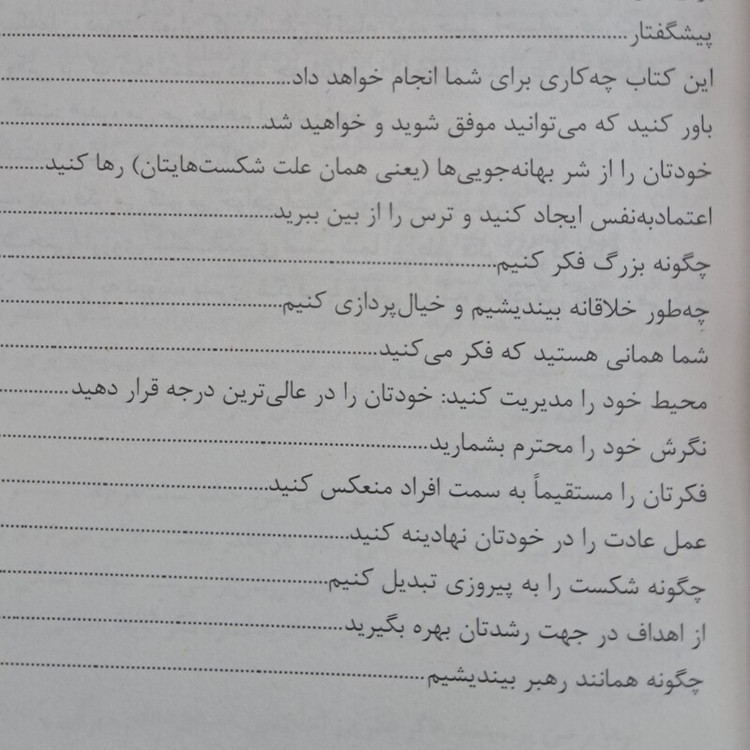 پیشگفتار
این کتاب چه‌کاری برای شما انجام خواهد داد
باور کنید که می‌توانید موفق شوید و خواهید شد
خودتان را از شر بهانه‌جویی‌ها (یعنی همان علت شکست‌هایتان) رها کنید
اعتمادبه‌نفس ایجاد کنید و ترس را از بین ببرید
چگونه بزرگ فکر کنیم
چه‌طور خلاقانه بیندیشیم و خیال‌پردازی کنیم
شما همانی هستید که فکر می‌کنید
محیط خود را مدیریت کنید: خودتان را در عالی‌ترین درجه قرار دهید
نگرش خود را محترم بشمارید
فکرتان را مستقیماً به سمت افراد منعکس کنید
عمل عادت را در خودتان نهادینه کنید
چگونه شکست را به پیروزی تبدیل کنیم
از اهداف در جهت رشدتان بهره بگیرید
چگونه همانند رهبر بیندیشیم